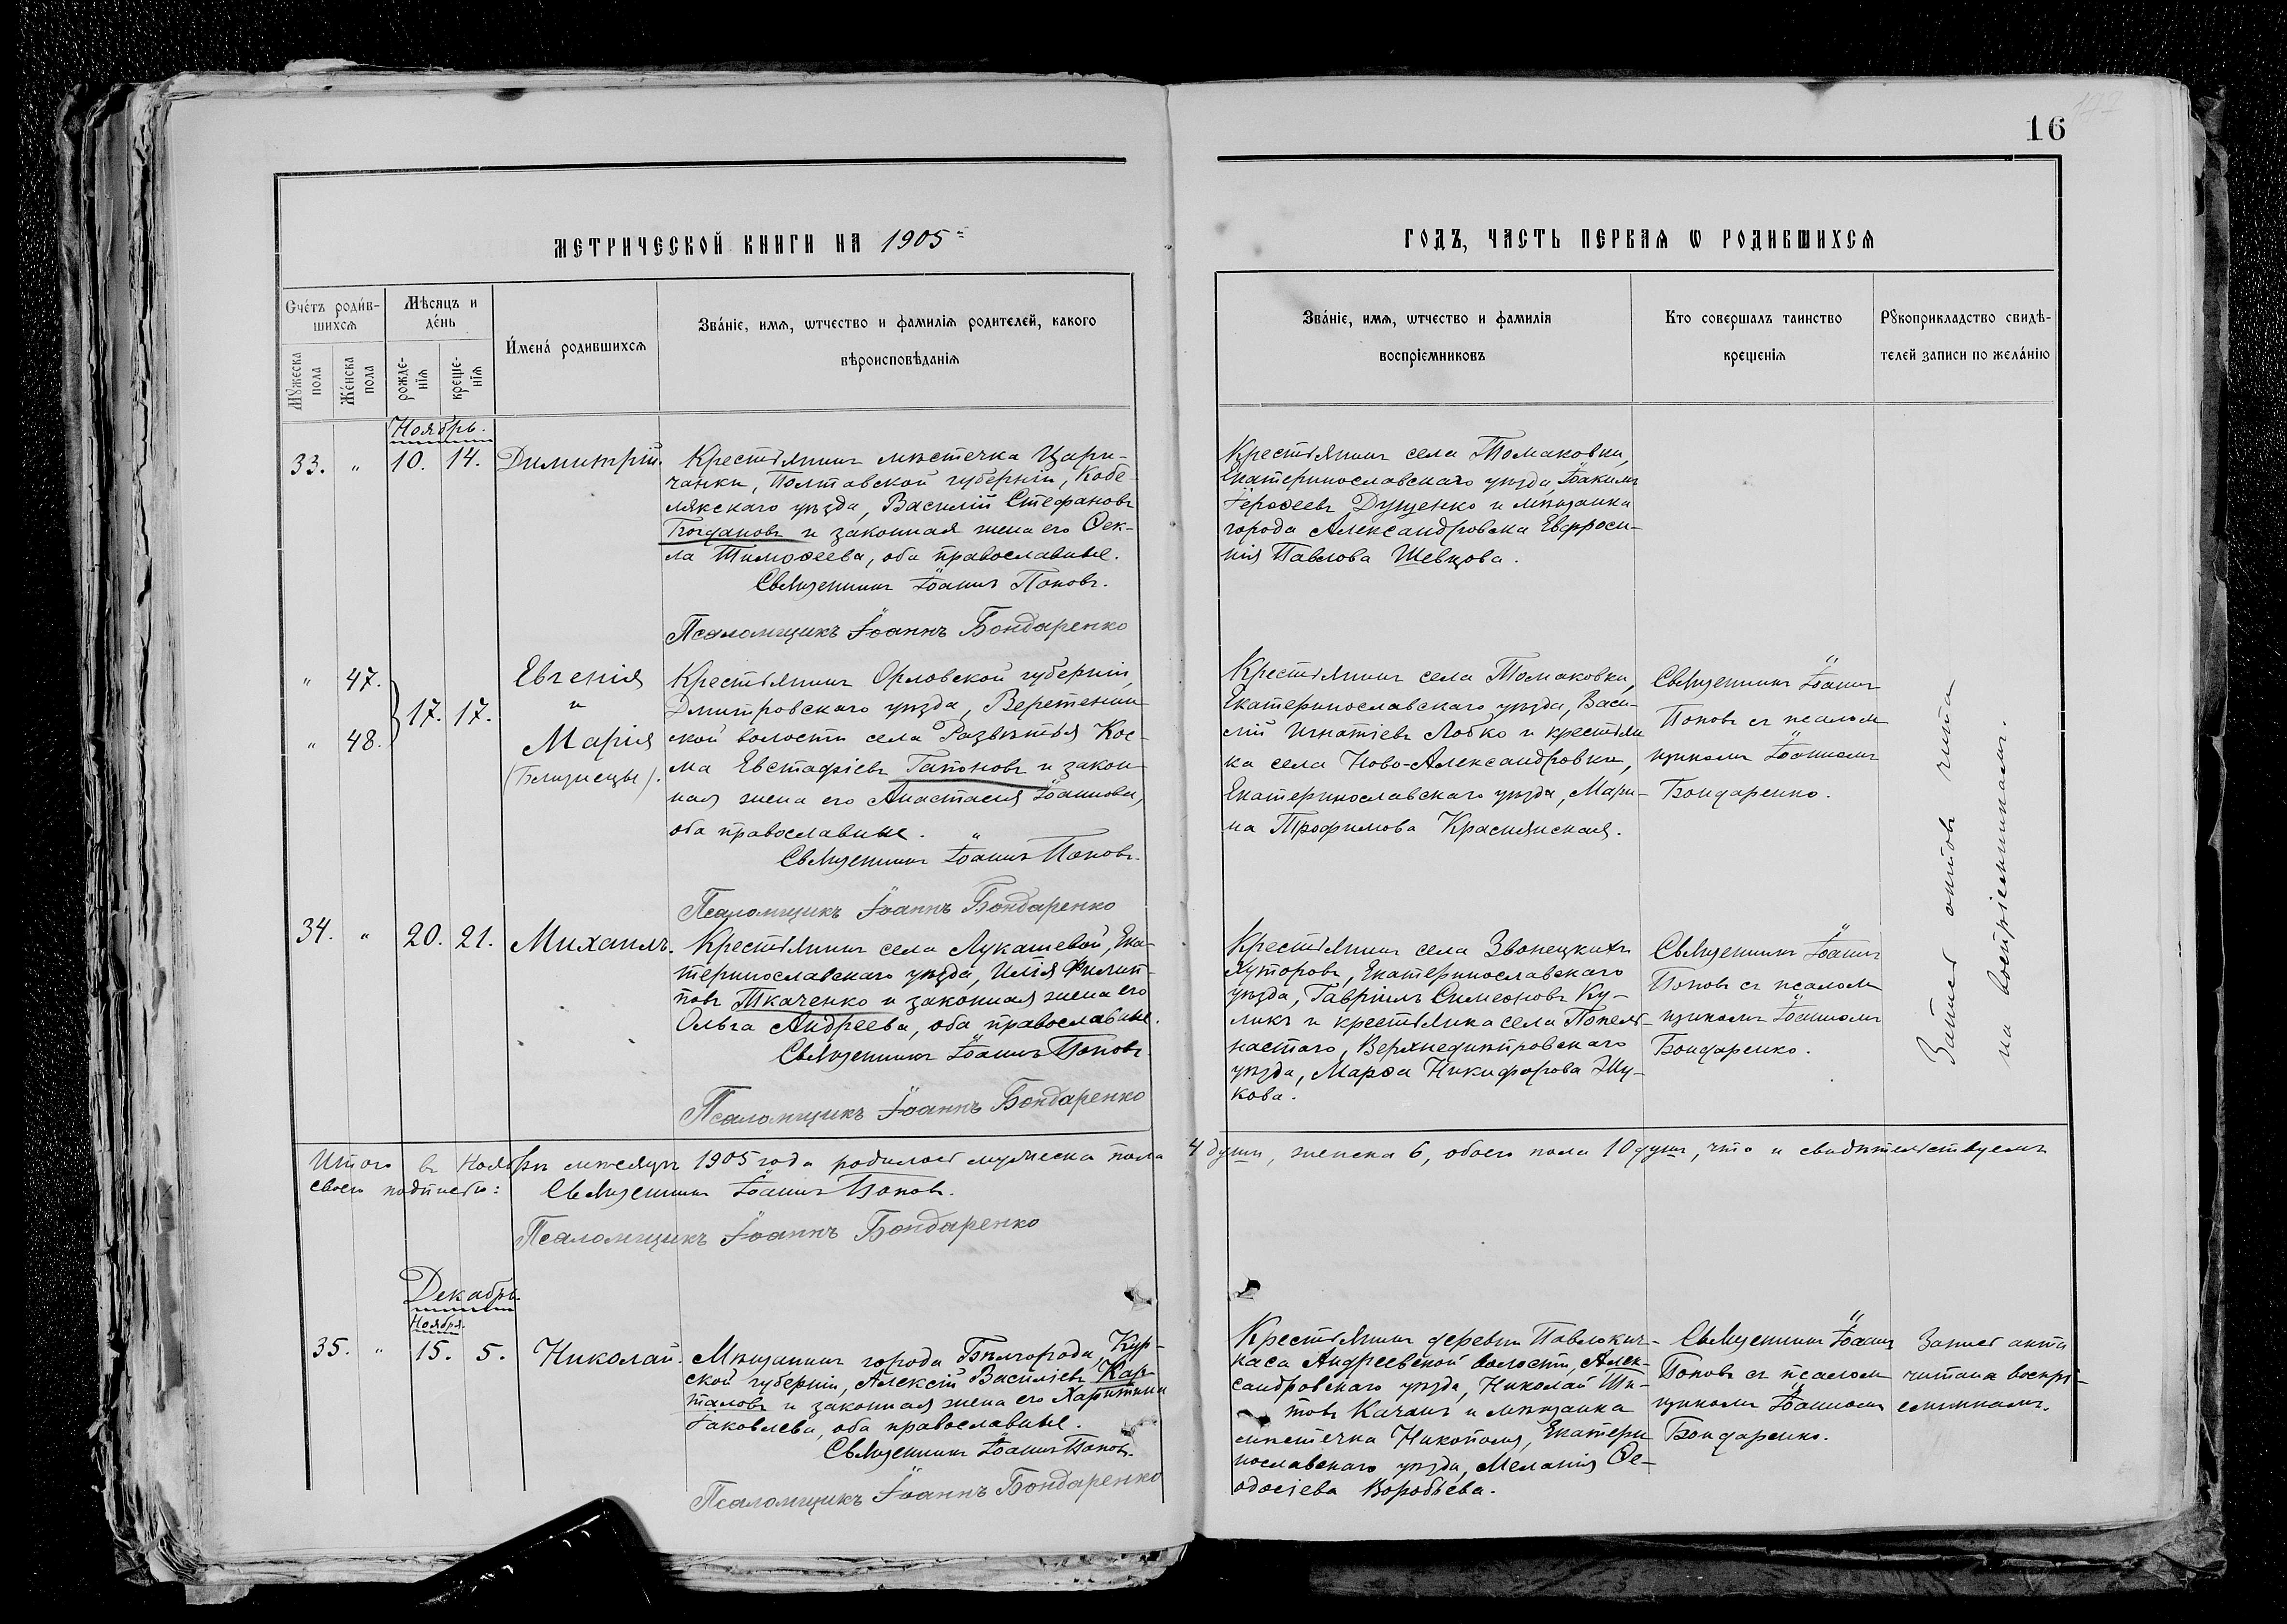 16
МЕТРИЧЕСКОЙ КНИГИ НА 1905
ГОДЪ, ЧАСТЬ ПЕРВАѦ Ѡ РОДИВШИХСѦ
Сче́тъ роди́в-
шихсѧ
Мꙋжеска
пола
Же́нска
пола
Мѣсяцъ и
де́нь
рожде-
нїѧ
креще-
нїѧ
И́мена́ родившихсѧ
Зва́нїе, имѧ, ѡтчество и фамилїѧ родителей, какого
вѣроисповѣданїѧ
Зва́нїе, имѧ, ѡтчество и фамилїѧ
воспрїемниковъ
Кто совершалъ таинство
крещенїѧ
Рꙋкоприкладство свидѣ-
телей записи по жела́нїю
Ноябрь.
33. " 10. 14. Димитрій.
Крестьянинъ мѣстечка Цари-
чанки, Полтавской губерніи, Кобе-
лякскаго уѣзда, Василій Стефановъ
Богдановъ и законная жена его Ѳек-
ла Тимоѳеева, оба православные.
Священникъ Іоаннъ Поповъ.
Псаломщикъ Іоаннъ Бондаренко
Крестьянинъ села Томаковки,
Екатеринославскаго уѣзда, Іоакимъ
Іероѳеевъ Дущенко и мѣщанка
города Александровска Евфроси-
нія Павлова Шевцова.
" 47.
" 48.
17. 17.
Евгенія
и
Марія
(Близнецы).
Крестьянинъ Орловской губерніи,
Дмитровскаго уѣзда, Веретенин-
ской волости села Развѣтья Кос-
ма Евстафіевъ Гапоновъ и закон-
ная жена его Анастасія Іоаннова,
оба православные.
Священникъ Іоаннъ Поповъ.
Псаломщикъ Іоаннъ Бондаренко
Крестьянинъ села Томаковки,
Екатеринославскаго уѣзда, Васи-
лій Игнатіевъ Лобко и крестьян
ка села Ново-Александровки,
Екатеринославскаго уѣзда, Мари-
на Трофимова Краснянская.
Священникъ Іоаннъ
Поповъ съ псалом
щикомъ Іоанномъ
Бондаренко.
Запись актовъ чита
на воспріемникамъ.
34. " 20. 21. Михаилъ.
Крестьянинъ села Лукашевой, Ека-
теринославскаго уѣзда, Илія Филип-
повъ Ткаченко и законная жена его
Ольга Андреева, оба православные.
Священникъ Іоаннъ Поповъ.
Псаломщикъ Іоаннъ Бондаренко
Крестьянинъ села Звонецкихъ
Хуторовъ, Екатеринославскаго
уѣзда, Гавріилъ Симеоновъ Ку-
ликъ и крестьянка села Попель-
настаго, Верхнеднѣпровскаго
уѣзда, Марѳа Никифорова Жу-
кова.
Священникъ Іоаннъ
Поповъ съ псалом
щикомъ Іоанномъ
Бондаренко.
Итого въ Ноябрѣ мѣсяцѣ 1905 года родилось мужеска пола 4 души, женска 6, обоего пола 10 душъ, что и свидѣтельствуемъ
своею подписью: Священникъ Іоаннъ Поповъ.
Псаломщикъ Іоаннъ Бондаренко
Декабрь.
Ноября.
35. " 15. 5. Николай.
Мѣщанинъ города Бѣлгорода, Кур-
ской губерніи, Алексій Василіевъ Кап-
таловъ и законная жена его Харитина
Іаковлева, оба православные.
Священникъ Іоаннъ Поповъ.
Псаломщикъ Іоаннъ Бондаренко
Крестьянинъ деревни Павлокич-
каса Андреевской волости, Алек-
сандровскаго уѣзда, Николай
Качанъ и мѣщанка
мѣстечка Никополя, Екатери
нославскаго уѣзда, Меланія Ѳе-
одосіева Воробьева.
Священникъ Іоаннъ
Поповъ съ псалом
щикомъ Іоанномъ
Бондаренко.
Запись акта
читана воспрі-
емникамъ.